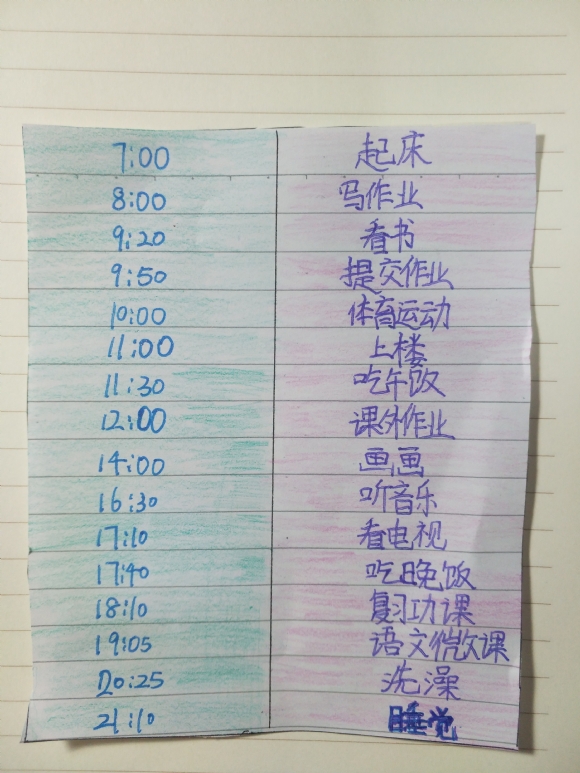 7:00 起床
8:00 写作业
9:20 看书
9:50 提交作业
10:00 体育运动
11:00 上楼
11:30 吃午饭
12:00 课外作业
14:00 画画
16:30 听音乐
17:10 看电视
17:40 吃晚饭
18:10 复习功课
19:05 语文微课
20:25 洗澡
21:10 睡觉